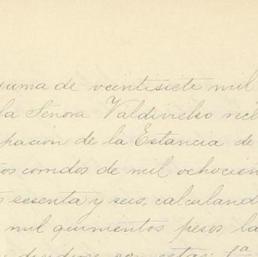 suma de veintisiete mil
la Señora Valdivielso reci
pación de la Estancia de
ños corridos de mil ochocien
s sesenta y seis, calculand
mil quinientos pesos la